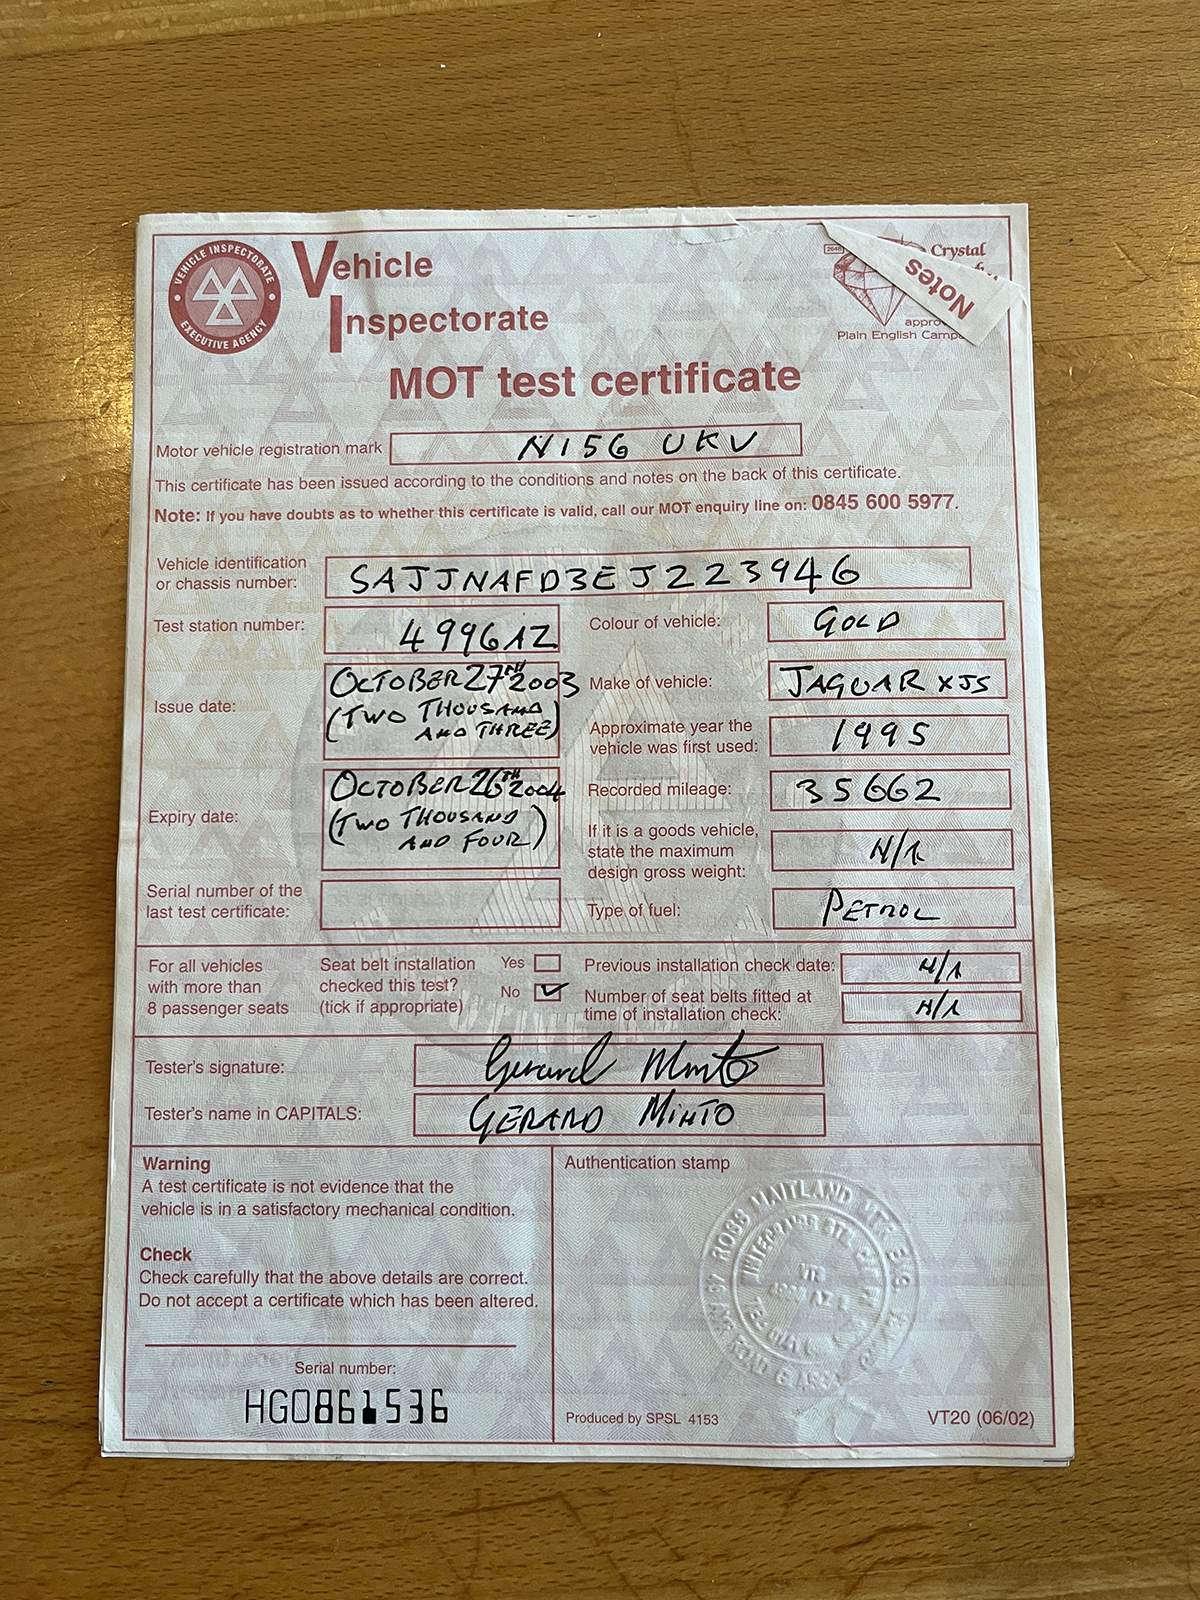 VEHICLE INSPECTORATE
EXECUTIVE AGENCY
Vehicle
Inspectorate
2648
Crystal
Notes
approv
Plain English Camp
MOT test certificate
Motor vehicle registration mark N156 UKV
This certificate has been issued according to the conditions and notes on the back of this certificate.
Note: If you have doubts as to whether this certificate is valid, call our MOT enquiry line on: 0845 600 5977.
Vehicle identification
or chassis number: SAJJNAFD3EJ223946
Test station number: 4996AZ
Colour of vehicle: GOLD
Issue date: OCTOBER 27TH 2003
(TWO THOUSAND
AND THREE)
Make of vehicle: JAGUAR XJS
Approximate year the
vehicle was first used: 1995
Expiry date: OCTOBER 26TH 2004
(TWO THOUSAND
AND FOUR)
Recorded mileage: 35662
If it is a goods vehicle,
state the maximum
design gross weight: N/A
Serial number of the
last test certificate:
Type of fuel: PETROL
For all vehicles
with more than
8 passenger seats
Seat belt installation
checked this test?
(tick if appropriate)
Yes
No
Previous installation check date: N/A
Number of seat belts fitted at
time of installation check: N/A
Tester's signature: Gerard Minto
Tester's name in CAPITALS: GERARD MINTO
Warning
A test certificate is not evidence that the
vehicle is in a satisfactory mechanical condition.
Check
Check carefully that the above details are correct.
Do not accept a certificate which has been altered.
Serial number:
HG0861536
Authentication stamp
ROSS MAITLAND MTR ENG
Produced by SPSL 4153
VT20 (06/02)